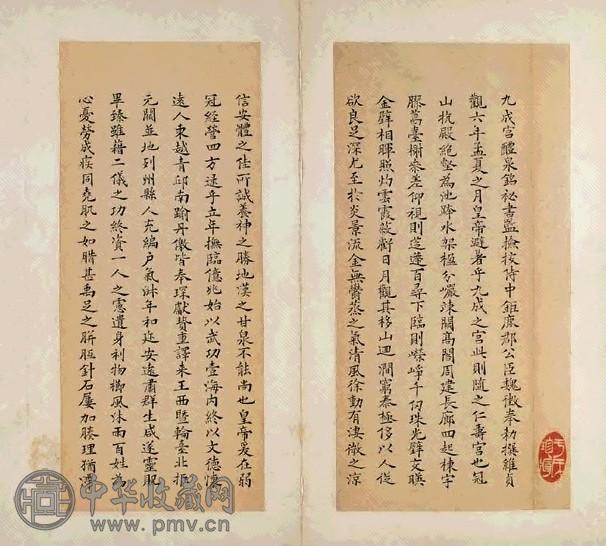 九成宮醴泉銘秘書監撿挍侍中鉅鹿郡公臣魏徵奉勑撰維貞
觀六年孟夏之月皇帝避暑乎九成之宮此則隨之仁壽宮也冠
山抗殿絕壑為池跨水架楹分巖竦闕高閣周建長廊四起棟宇
膠葛臺榭參差仰視則迢遰百尋下臨則崢嶸千仞珠光璧交暎
金碧相暉照灼雲霞蔽虧日月觀其移山迴澗窮泰極侈以人從
欲良足深尤至於炎景流金無鬱蒸之氣清風徐動有淒微之涼
信安體之佳所誠養神之勝地漢之甘泉不能尚也皇帝爰在弱
冠經營四方逮乎立年撫臨億兆始以武功壹海內終以文德懷
遠人東越青邱南踰丹儌皆奉琛獻贄重譯來王西暨輪臺北拒
元闕並地列州縣人充編戶氣淑年和迩安遠肅群生咸遂靈貺
畢臻雖藉二儀之功終資一人之慮遺身利物櫛風沐雨百姓為
心憂勞成疾同堯肌之如腊甚禹足之胼胝針石屢加腠理猶滯
中华收藏网
www.pmv.cn